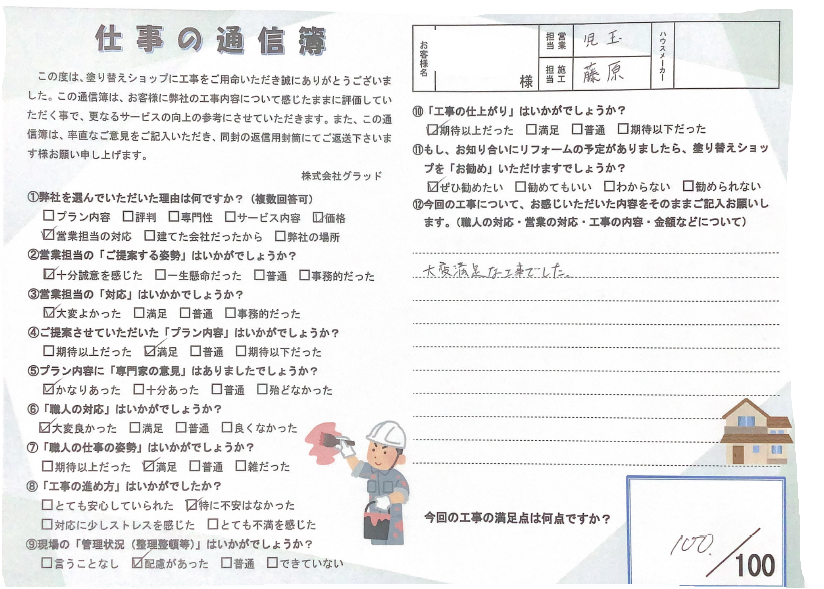 仕事の通信簿
この度は、塗り替えショップに工事をご用命いただき誠にありがとうございま
した。この通信簿は、お客様に弊社の工事内容について感じたままに評価してい
ただく事で、更なるサービスの向上の参考にさせていただきます。また、この通
信簿は、率直なご意見をご記入いただき、同封の返信用封筒にてご返送下さいま
す様お願い申し上げます。
株式会社グラッド
①弊社を選んでいただいた理由は何ですか？（複数回答可）
□プラン内容 □評判 □専門性 □サービス内容 ☑価格
☑営業担当の対応 □建てた会社だったから □弊社の場所
②営業担当の「ご提案する姿勢」はいかがでしょうか？
☑十分誠意を感じた □一生懸命だった □普通 □事務的だった
③営業担当の「対応」はいかかでしょうか？
☑大変よかった □満足 □普通 □事務的だった
④ご提案させていただいた「プラン内容」はいかがでしょうか？
□期待以上だった ☑満足 □普通 □期待以下だった
⑤プラン内容に「専門家の意見」はありましたでしょうか？
☑かなりあった □十分あった □普通 □殆どなかった
⑥「職人の対応」はいかがでしょうか？
☑大変良かった □満足 □普通 □良くなかった
⑦「職人の仕事の姿勢」はいかがでしょうか？
□期待以上だった ☑満足 □普通 □雑だった
⑧「工事の進め方」はいかがでしたか？
□とても安心していられた ☑特に不安はなかった
□対応に少しストレスを感じた □とても不満を感じた
⑨現場の「管理状況（整理整頓等）」はいかがでしょうか？
□言うことなし ☑配慮があった □普通 □できていない
お客様名 様 営業担当 児玉 ハウスメーカー
施工担当 藤原
⑩「工事の仕上がり」はいかがでしょうか？
☑期待以上だった □満足 □普通 □期待以下だった
⑪もし、お知り合いにリフォームの予定がありましたら、塗り替えショッ
プを「お勧め」いただけますでしょうか？
☑ぜひ勧めたい □勧めてもいい □わからない □勧められない
⑫今回の工事について、お感じいただいた内容をそのままご記入お願いし
ます。（職人の対応・営業の対応・工事の内容・金額などについて）
大変満足な工事でした。
今回の工事の満足点は何点ですか？
100/100